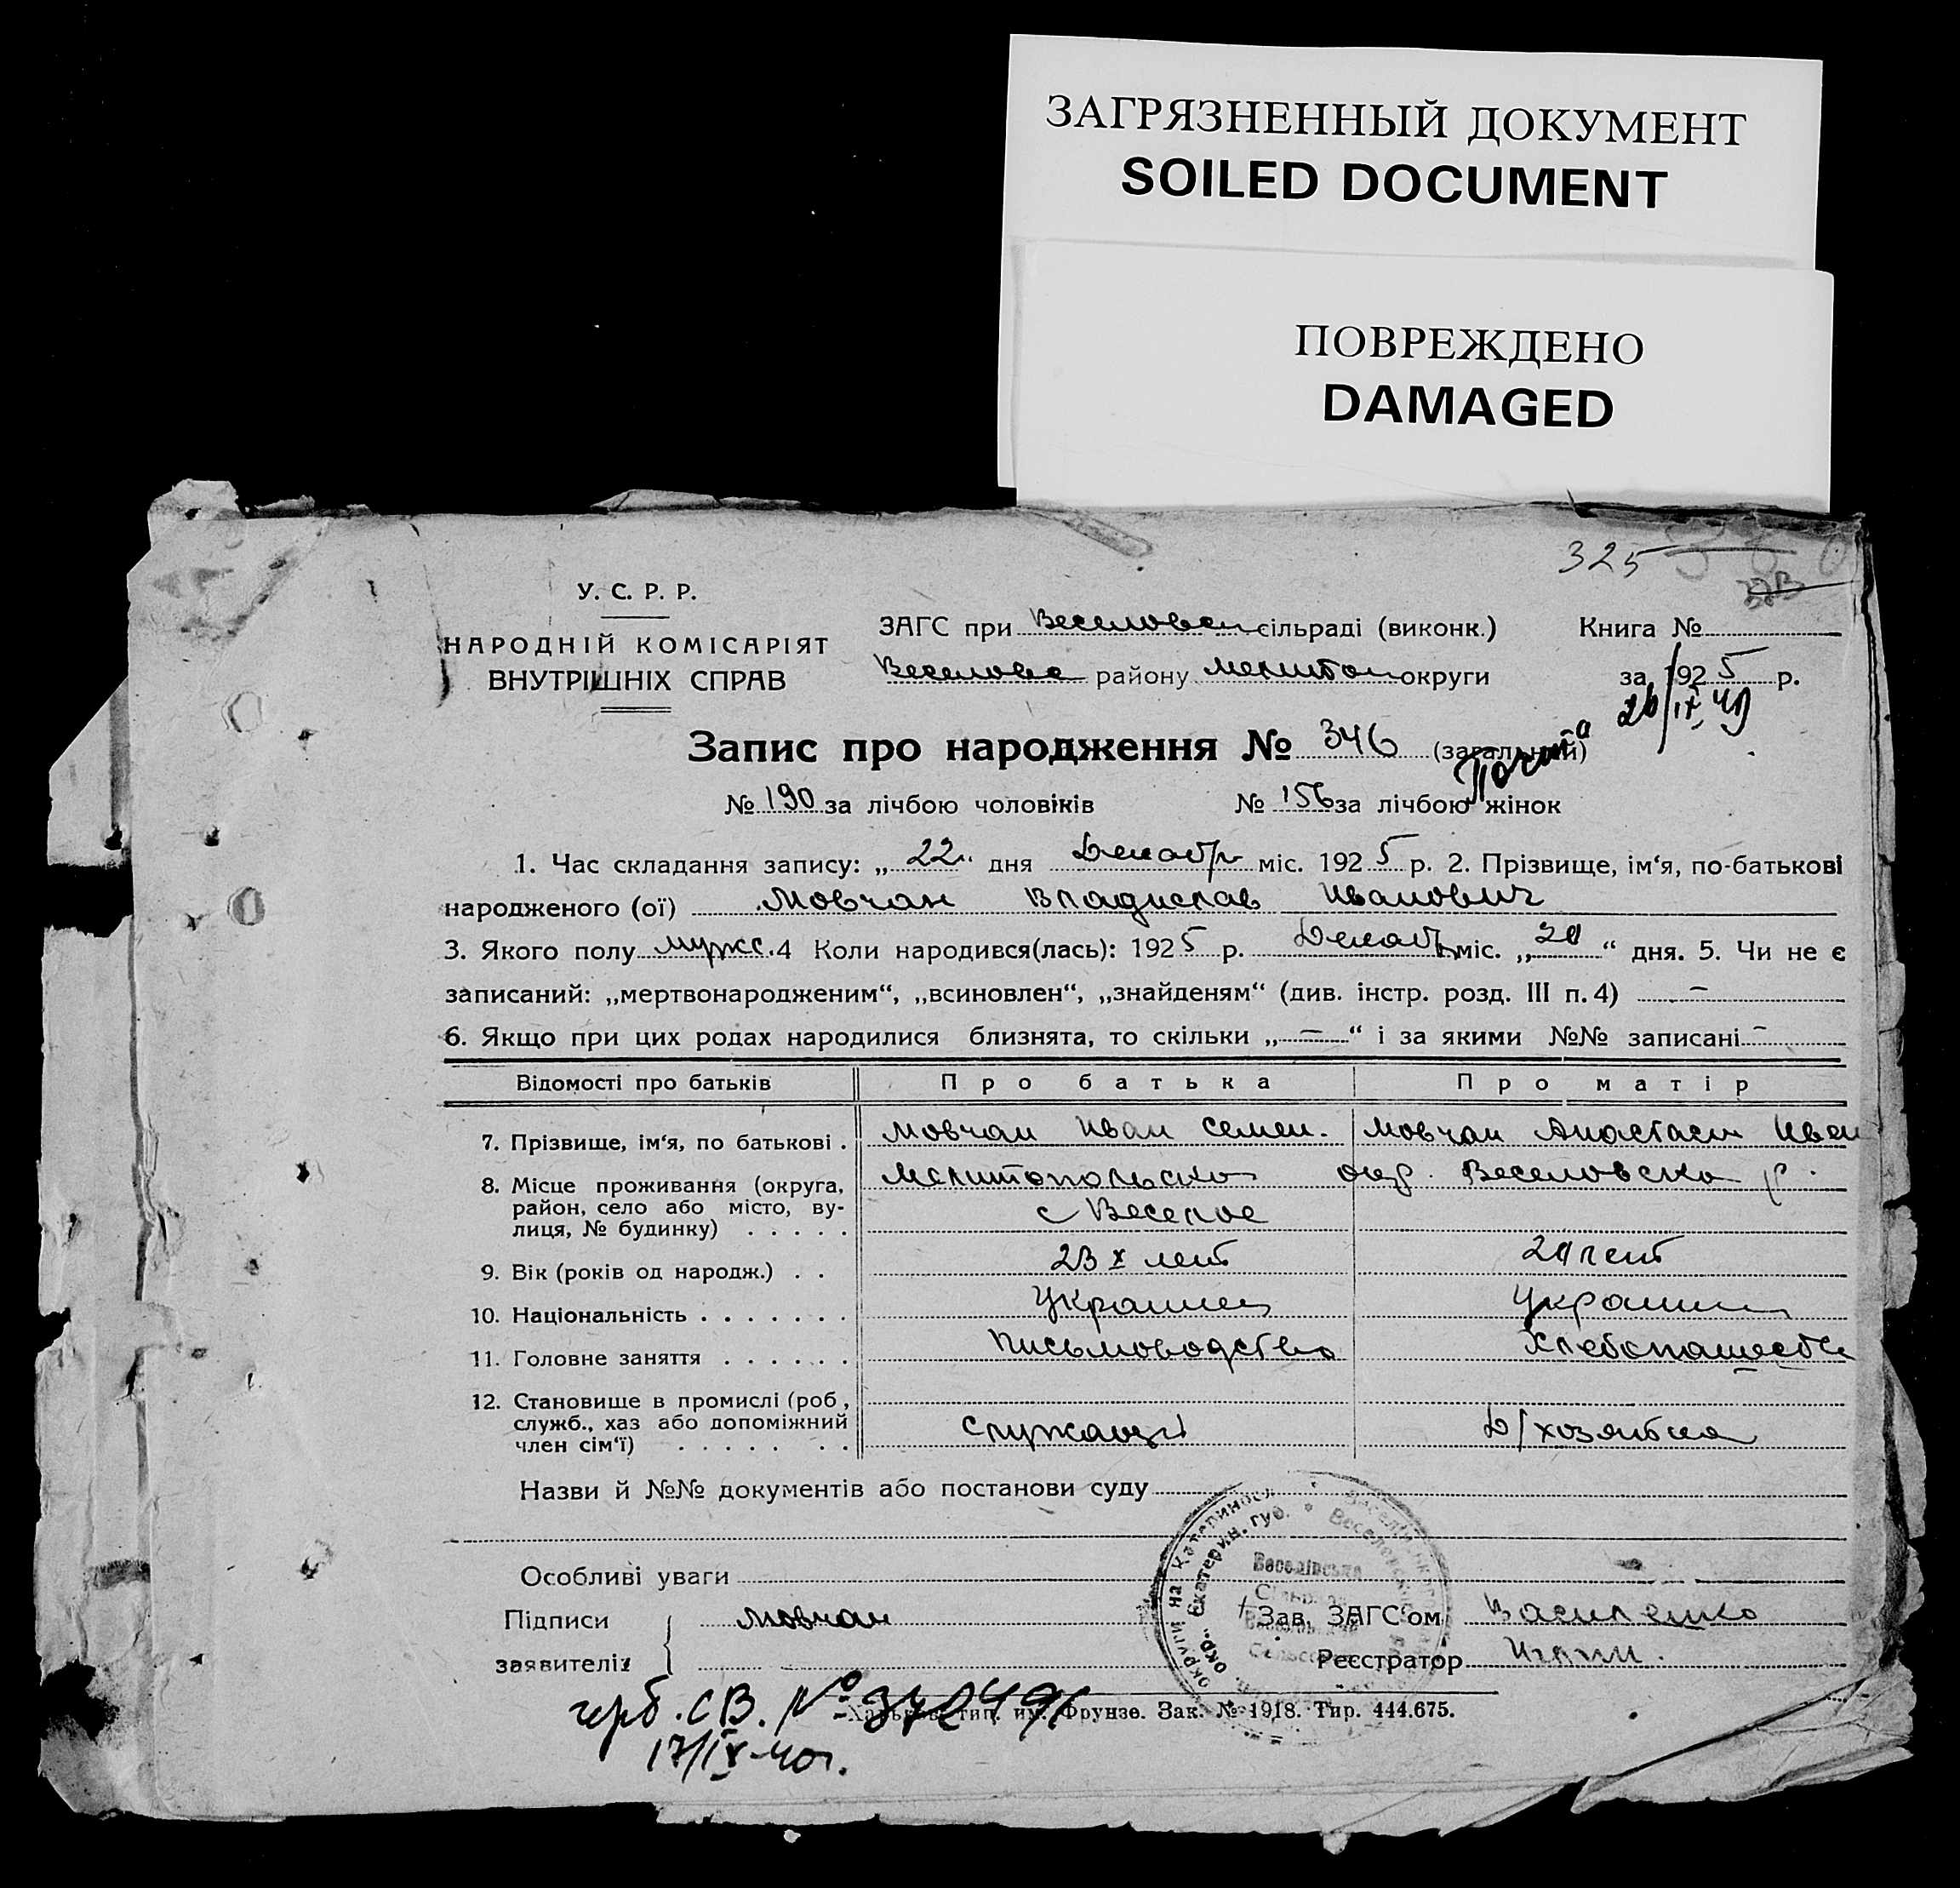 ЗАГРЯЗНЕННЫЙ ДОКУМЕНТ
SOILED DOCUMENT
ПОВРЕЖДЕНО
DAMAGED
325
У. С. Р. Р.
НАРОДНІЙ КОМІСАРІЯТ
ВНУТРІШНІХ СПРАВ
ЗАГС при Веселовск сільраді (виконк.) Книга №
Веселовс району Мелитоп округи за 1925 р.
26/IX 40
Запис про народження № 346 (загальний)
№ 190 за лічбою чоловіків № 156 за лічбою жінок
1. Час складання запису: „22“ дня Декабр міс. 1925 р. 2. Прізвище, ім‘я, по-батькові
народженого (ої) Мовчан Владислав Иванович
3. Якого полу мужс. 4 Коли народився(лась): 1925 р. Декабр міс. „20“ дня. 5. Чи не є
записаний: „мертвонародженим“, „всиновлен“, „знайденям“ (див. інстр. розд. III п. 4) –
6. Якщо при цих родах народилися близнята, то скільки „–“ і за якими №№ записані –
Відомості про батьків Про батька Про матір
7. Прізвище, ім‘я, по батькові . Мовчан Иван Семен. Мовчан Анастаси Иван
8. Місце проживання (округа, район, село або місто, ву-лиця, № будинку) . . . . . Мелитопольско окр. Веселовско р.
с Веселое
9. Вік (років од народж.) . . 23 х лет 20 лет
10. Національність . . . . . . . Украинец Украинц
11. Головне заняття . . . . . . Письмоводство Хлебопашеств
12. Становище в промислі (роб, служб., хаз або допоміжний член сім‘ї) . . . . . . . Служащі Д/хозяйка
Назви й №№ документів або постанови суду
Особливі уваги
Підписи заявителів Мовчан
Зав. ЗАГС‘ом Василенко
Реєстратор
герб. СВ. № 372491
Харьков, тип. им. Фрунзе. Зак. № 1918. Тир. 444.675.
17/IX-40г.